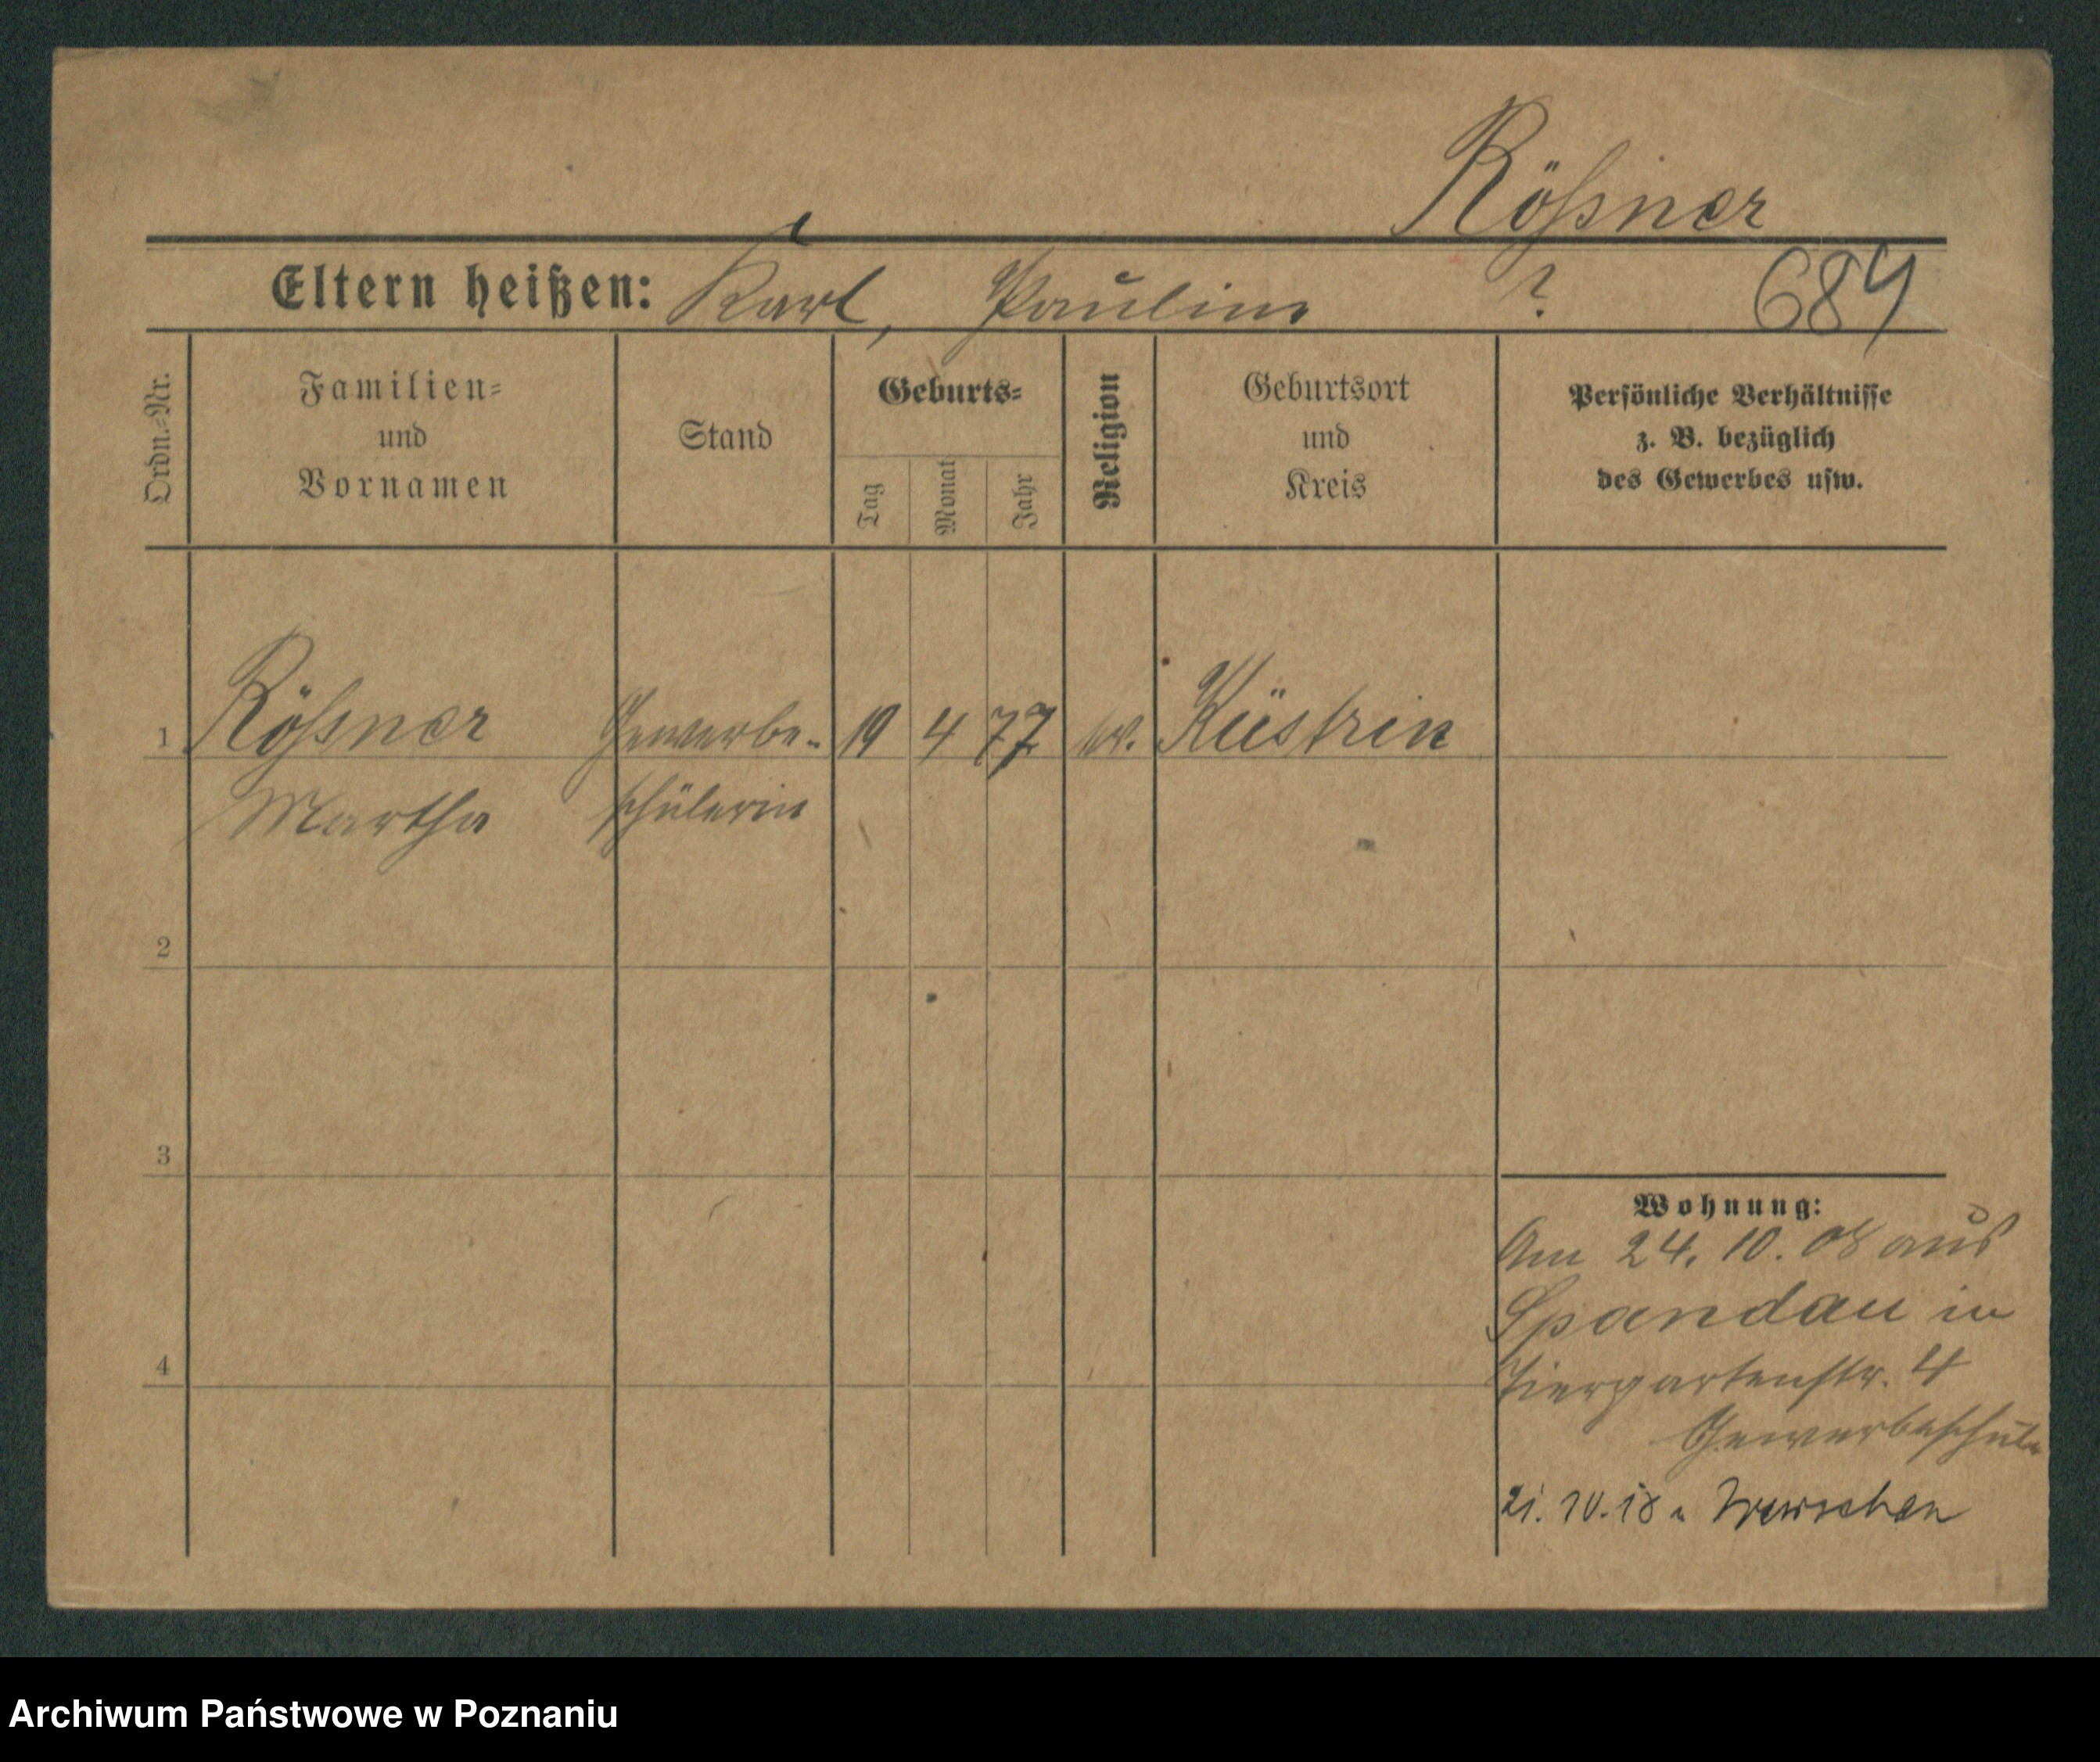 Rößner
Eltern heißen: Karl, Pauline ? 684
Ordn.=Nr.
Familien=
und
Vornamen
Stand
Geburts=
Tag
Monat
Jahr
Religion
Geburtsort
und
Kreis
Persönliche Verhältnisse
z. B. bezüglich
des Gewerbes usw.
1 Rößner Gewerbe- 19 4 77 ev. Küstrin
Martha schülerin
2
3
4
Wohnung:
Am 24. 10. 08 aus
Spandau in
Tiergartenstr. 4
Gewerbeschule
21. 10. 18 n Wreschen
Archiwum Państwowe w Poznaniu